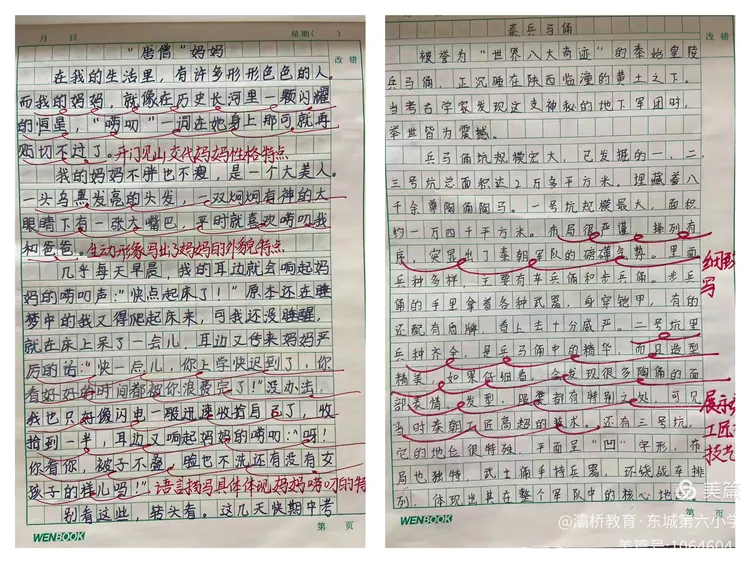 月 日 星期( )
改错
"唐僧"妈妈
在我的生活里，有许多形形色色的人。
而我的妈妈，就像在历史长河里一颗闪耀
的恒星，"唠叨"一词在她身上那可就再
贴切不过了。开门见山交代妈妈性格特点
我的妈妈不胖也不瘦，是一个大美人。
一头乌黑发亮的头发，一双炯炯有神的大
眼睛下有一张大嘴巴，平时就喜欢唠叨我
和爸爸。生动形象写出了妈妈的外貌特点
几乎每天早晨，我的耳边就会响起妈
妈的唠叨声："快点起床了！"原本还在睡
梦中的我又得爬起床来，可我还没睡醒，
就在床上呆了一会儿，耳边又传来妈妈严
厉的话："快一点儿，你上学快迟到了，你
看好好的时间都被你浪费完了！"没办法，
我也只好像闪电一般迅速收拾自己了，收
拾到一半，耳边又响起妈妈的唠叨："妈！
你看你，被子不叠，脸也不洗还有没有女
孩子的样儿吗！"语言描写具体体现妈妈唠叨的特
别看这些，转头看。这几天快期中考
WENBOOK 第 页
月 日
改错
秦兵马俑
被誉为"世界八大奇迹"的秦始皇陵
兵马俑，正沉睡在陕西临潼的黄土之下。
当考古学家发现这支神秘的地下军团时，
举世皆为震撼。
兵马俑坑规模宏大，已发掘的一、二、
三号坑总面积达2万多平方米，埋藏着八
千余尊陶俑陶马。一号坑规模最大，面积
约一万四千平方米。布局很严谨，排列有
序，突显出了秦朝军队的磅礴气势。里面
兵种多样，主要有车兵俑和步兵俑。步兵
俑的手里拿着各种武器，身穿铠甲，有的
还配有盾牌，看上去十分威严。二号坑里
兵种齐全，是兵马俑中的精华，而且造型
精美，如果仔细看，会发现很多陶俑的面
部表情、发型、服装都有特别之处，可见
当时秦朝工匠高超的技术。还有三号坑，
它的地位很特殊，平面呈"凹"字形，布
局也独特，武士俑手持兵器，环绕战车排
列，体现出其在整个军队中的核心地
写
展示
工匠
技
WENBOOK
美篇
@灞桥教育·东城第六小学
美篇号:1064604